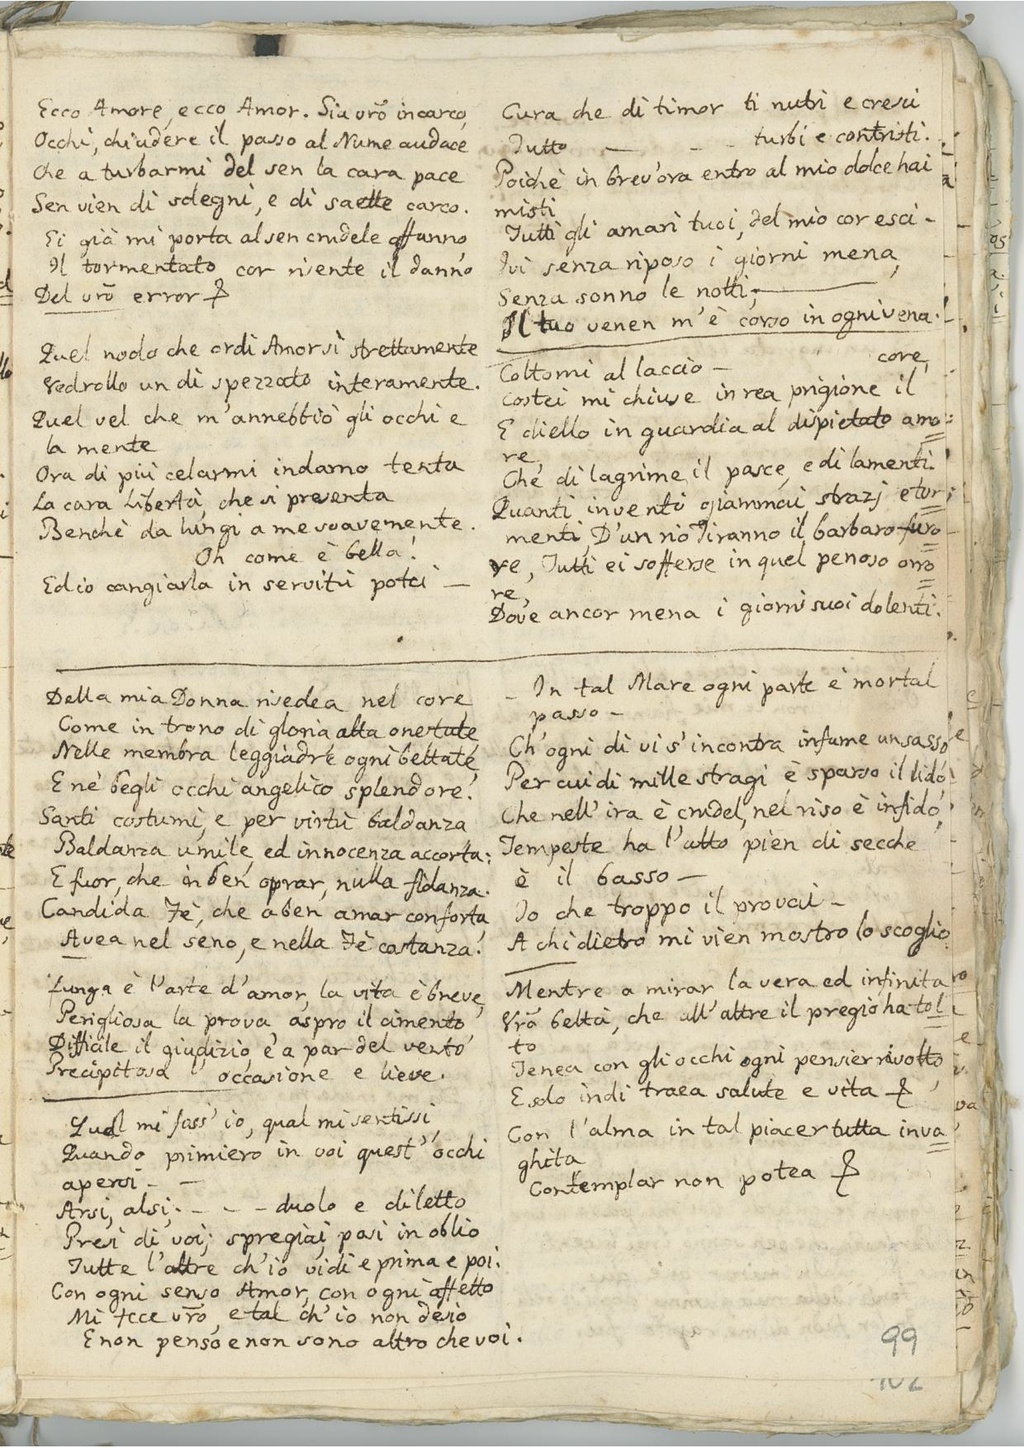 Ecco Amore, ecco Amor. Sia vrõ incarco,
Occhi, chiudere il passo al Nume audace
Che a turbarmi del sen la cara pace
Sen vien di sdegni, e di saette carco.
Ei già mi porta al sen crudele affanno
Il tormentato cor risente il danno
Del vrõ error
Quel nodo che ordì Amor sì strettamente
Vedrollo un dì spezzato interamente.
Quel vel che m'annebbiò gli occhi e
la mente
Ora di più celarmi indarno tenta
La cara Libertà, che si presenta
Benchè da lungi a me soavemente.
Oh come è bella!
Ed io cangiarla in servitù potei —
Della mia Donna risedea nel core
Come in trono di gloria alta onestate
Nelle membra leggiadre ogni beltate,
E ne' begli occhi angelico splendore.
Santi costumi, e per virtù baldanza
Baldanza umile, ed innocenza accorta;
E fuor, che in ben oprar, nulla fidanza.
Candida Fè, che a ben amar conforta,
Avea nel seno, e nella Fè costanza.
Lunga è l'arte d'amor, la vita è breve,
Perigliosa la prova aspro il cimento
Difficile il giudizio, e a par del vento
Precipitosa l'occasione e lieve.
Qual mi foss' io, qual mi sentissi,
Quando primiero in voi quest' occhi
apersi — —
Arsi, alsi; - - - duolo e diletto
Presi di voi; spregiai, posi in oblio
Tutte l'altre ch'io vidi e prima e poi.
Con ogni senso Amor, con ogni affetto
Mi fece vrõ, e tal ch'io non desio
E non penso e non sono altro che voi.
Cura che di timor ti nutri e cresci
Tutto — - - turbi e contristi.
Poichè in brev'ora entro al mio dolce hai
misti
Tutti gli amari tuoi, del mio cor esci -
Ivi senza riposo i giorni mena,
Senza sonno le notti, —
Il tuo venen m'è corso in ogni vena!
Coltomi al laccio — core,
Costei mi chiuse in rea prigione il
E diello in guardia al dispietato amo
re,
Che di lagrime il pasce, e di lamenti.
Quanti inventò giammai strazj e tor
menti, D'un rio Tiranno il barbaro furo
re, Tutti ei sofferse in quel penoso orro
re,
Dove ancor mena i giorni suoi dolenti.
- In tal Mare ogni parte è mortal
passo -
Ch'ogni dì vi s'incontra infame un sasso
Per cui di mille stragi è sparso il lido,
Che nell' ira è crudel, nel riso è infido,
Tempeste ha l'alto pien di secche
è il basso —
Io che troppo il provai -
A chi dietro mi vien mostro lo scoglio.
Mentre a mirar la vera ed infinita
Vrã beltà, che all' altre il pregio ha tol
to
Tenea con gli occhi ogni pensier rivolto
E solo indi traea salute e vita
Con l'alma in tal piacer tutta inva
ghita
Contemplar non potea
99
102